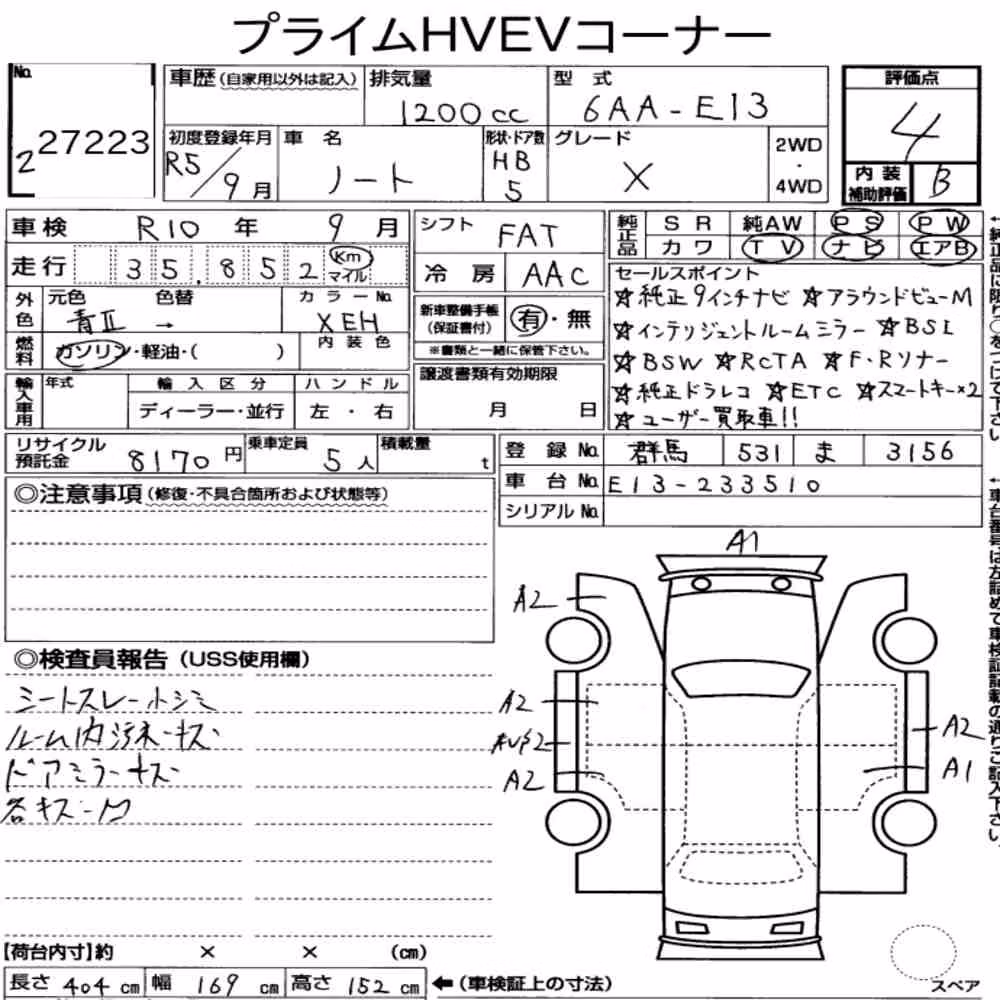 プライムHVEVコーナー
No. 2 27223
車歴 (自家用以外は記入) 排気量 1200cc 型式 6AA-E13 評価点 4
初度登録年月 R5/9月 車名 ノート 形状・ドア数 HB 5 グレード X 2WD・4WD 内装補助評価 B
車検 R10年 9月 シフト FAT 純正品 SR 純AW PS PW
カワ TV ナビ エアB
走行 35,852 Km マイル 冷房 AAC
セールスポイント
☆純正9インチナビ ☆アラウンドビューM
☆インテリジェントルームミラー ☆BSI
☆BSW ☆RCTA ☆F・Rソナー
☆純正ドラレコ ☆ETC ☆スマートキー×2
☆ユーザー買取車!!
外色 元色 青Ⅱ 色替 → カラーNo. XEH
内装色
新車整備手帳(保証書付) 有・無
※書類と一緒に保管下さい。
燃料 ガソリン・軽油・( )
譲渡書類有効期限
月 日
輸入車用 年式 輸入区分 ハンドル
ディーラー・並行 左・右
リサイクル預託金 8170円 乗車定員 5人 積載量 t
登録No. 群馬 531 ま 3156
車台No. E13-233510
シリアルNo.
◎注意事項 (修復・不具合箇所および状態等)
◎検査員報告 (USS使用欄)
シートスレ-ホシミ
ルーム内汚ネ-キズ
ドアミラーキズ
各キズ-M
A1
A2
A2
A2
A2
A1
【荷台内寸】約 × × (cm)
長さ 404 cm 幅 169 cm 高さ 152 cm ←(車検証上の寸法)
スペア
←純正品は限り○をつけて下さい。
←車台番号は左詰めで車検証記載の通りご記入下さい。